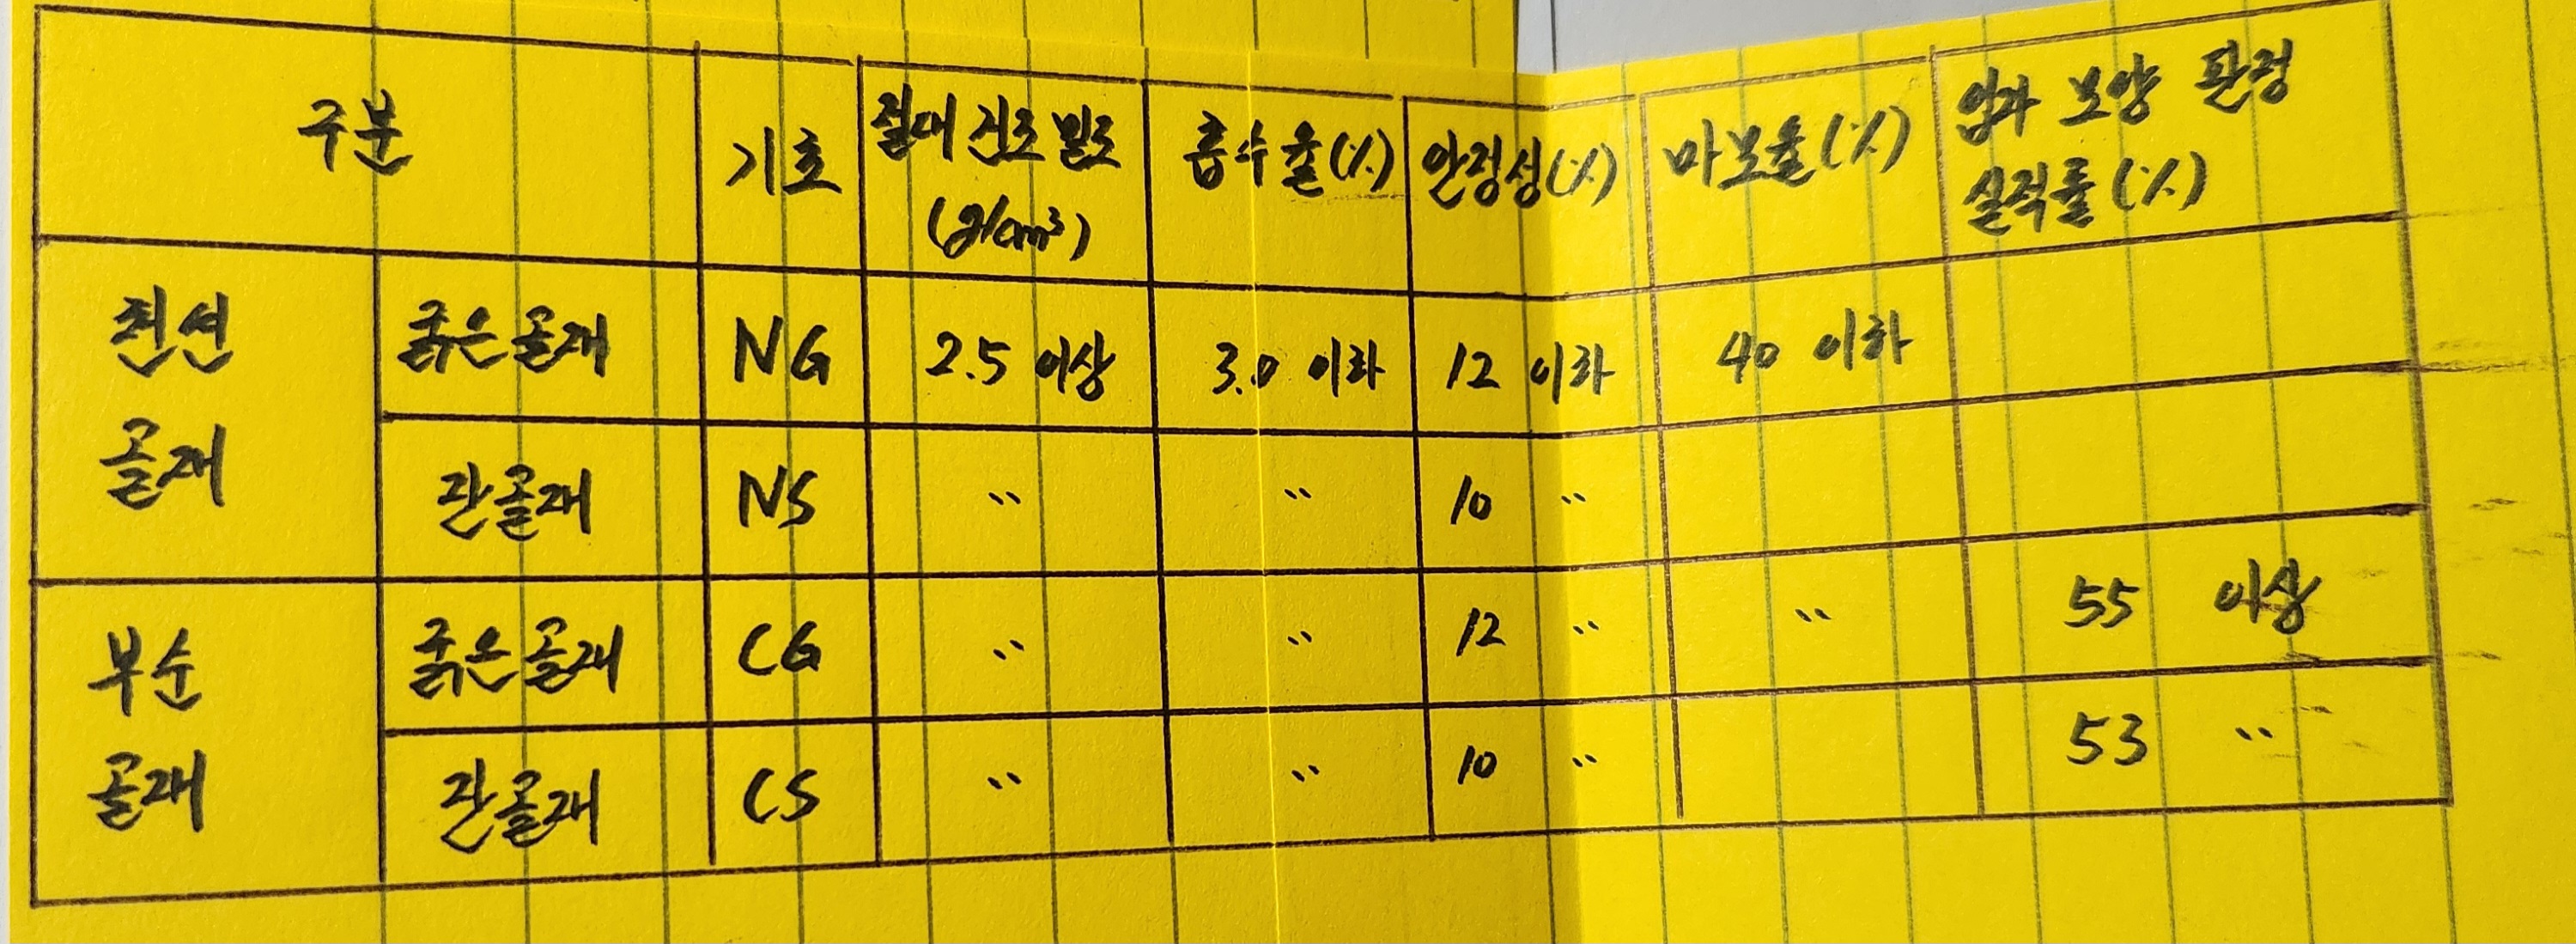 구분
기호
절대 건조 밀도
(g/cm³)
흡수율(%)
안정성(%)
마모율(%)
입자 모양 판정
실적률(%)
천연
골재
굵은골재
NG
2.5 이상
3.0 이하
12 이하
40 이하
잔골재
NS
〃
〃
10 〃
부순
골재
굵은골재
CG
〃
〃
12 〃
〃
55 이상
잔골재
CS
〃
〃
10 〃
53 〃